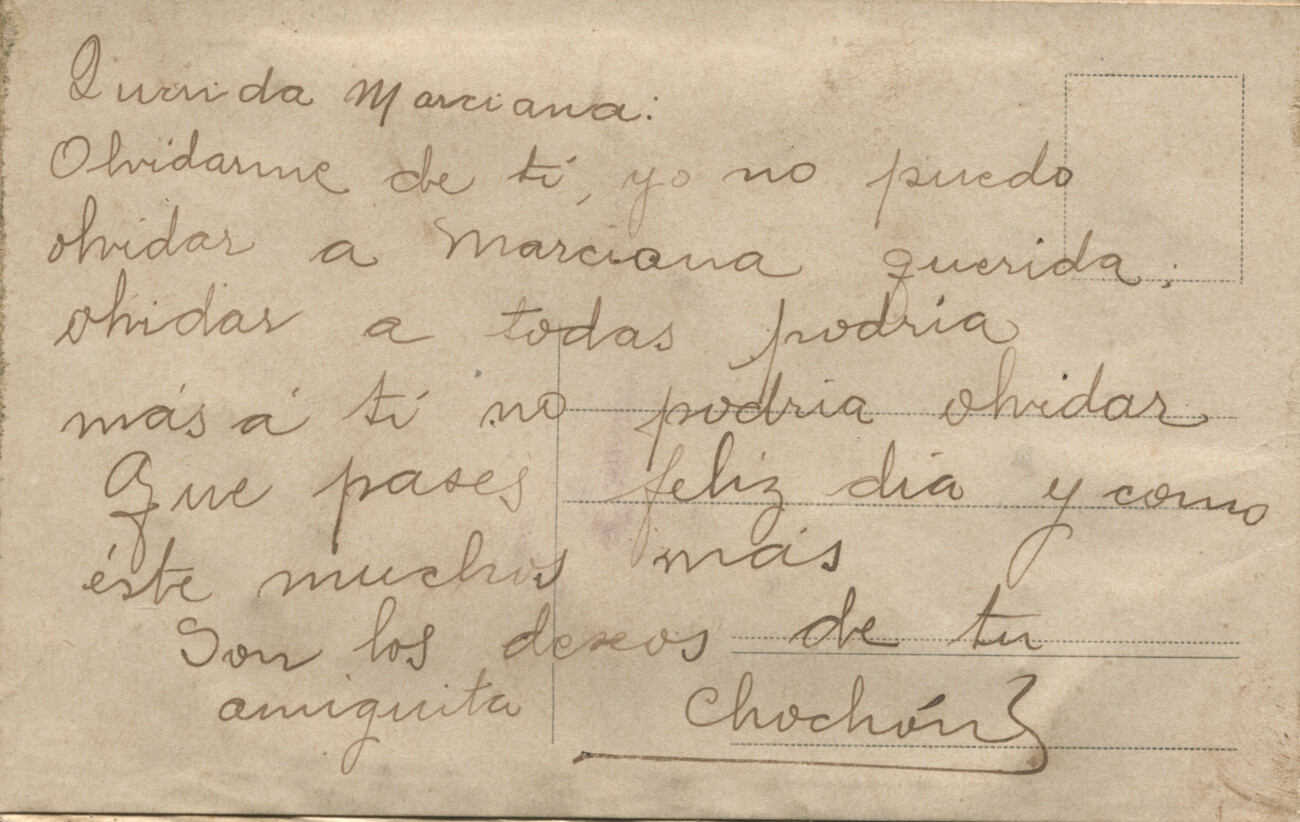 Querida Marciana:
Olvidarme de tí, yo no puedo
olvidar a Marciana querida;
olvidar a todas podría
más á tí no podría olvidar
Que pases feliz día y como
éste muchos más
Son los deseos de tu
amiguita Chochón